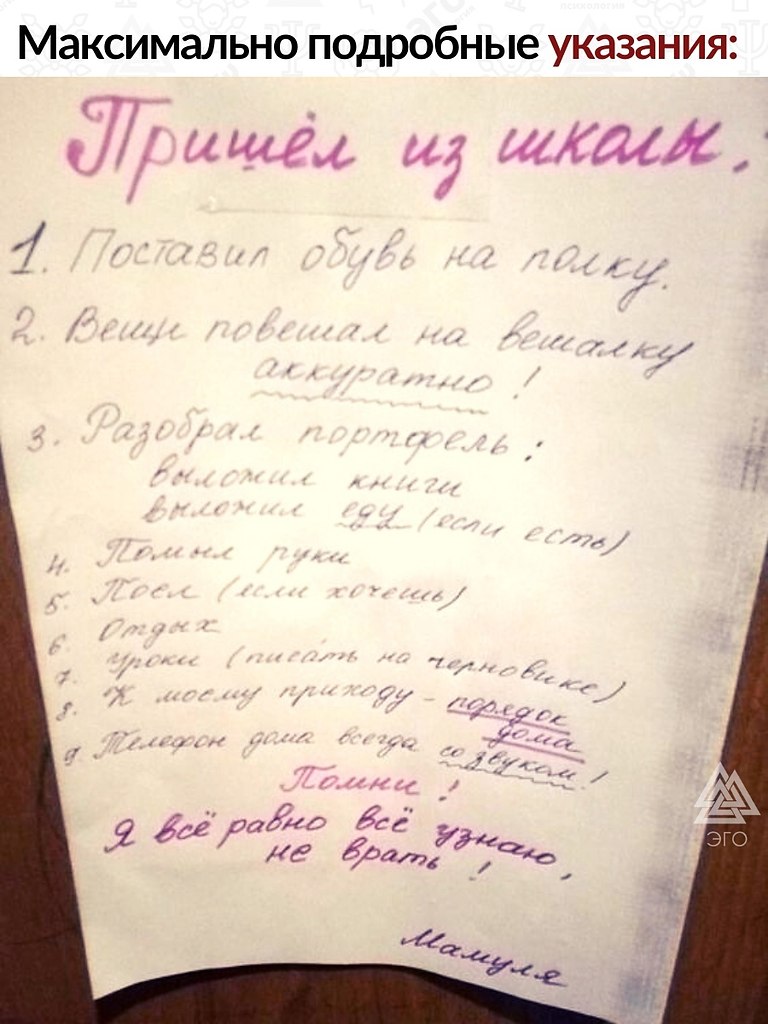 Максимально подробные указания:
Пришёл из школы.
1. Поставил обувь на полку.
2. Вещи повешал на вешалку
аккуратно!
3. Разобрал портфель:
выложил книги
выложил еду (если есть)
4. Помыл руки
5. Поел (если хочешь)
6. Отдых
7. Уроки (писать на черновике)
8. К моему приходу - порядок
дома
9. Телефон дома всегда со звуком!
Помни!
Я всё равно всё узнаю,
не врать!
Мамуля
ЭГО